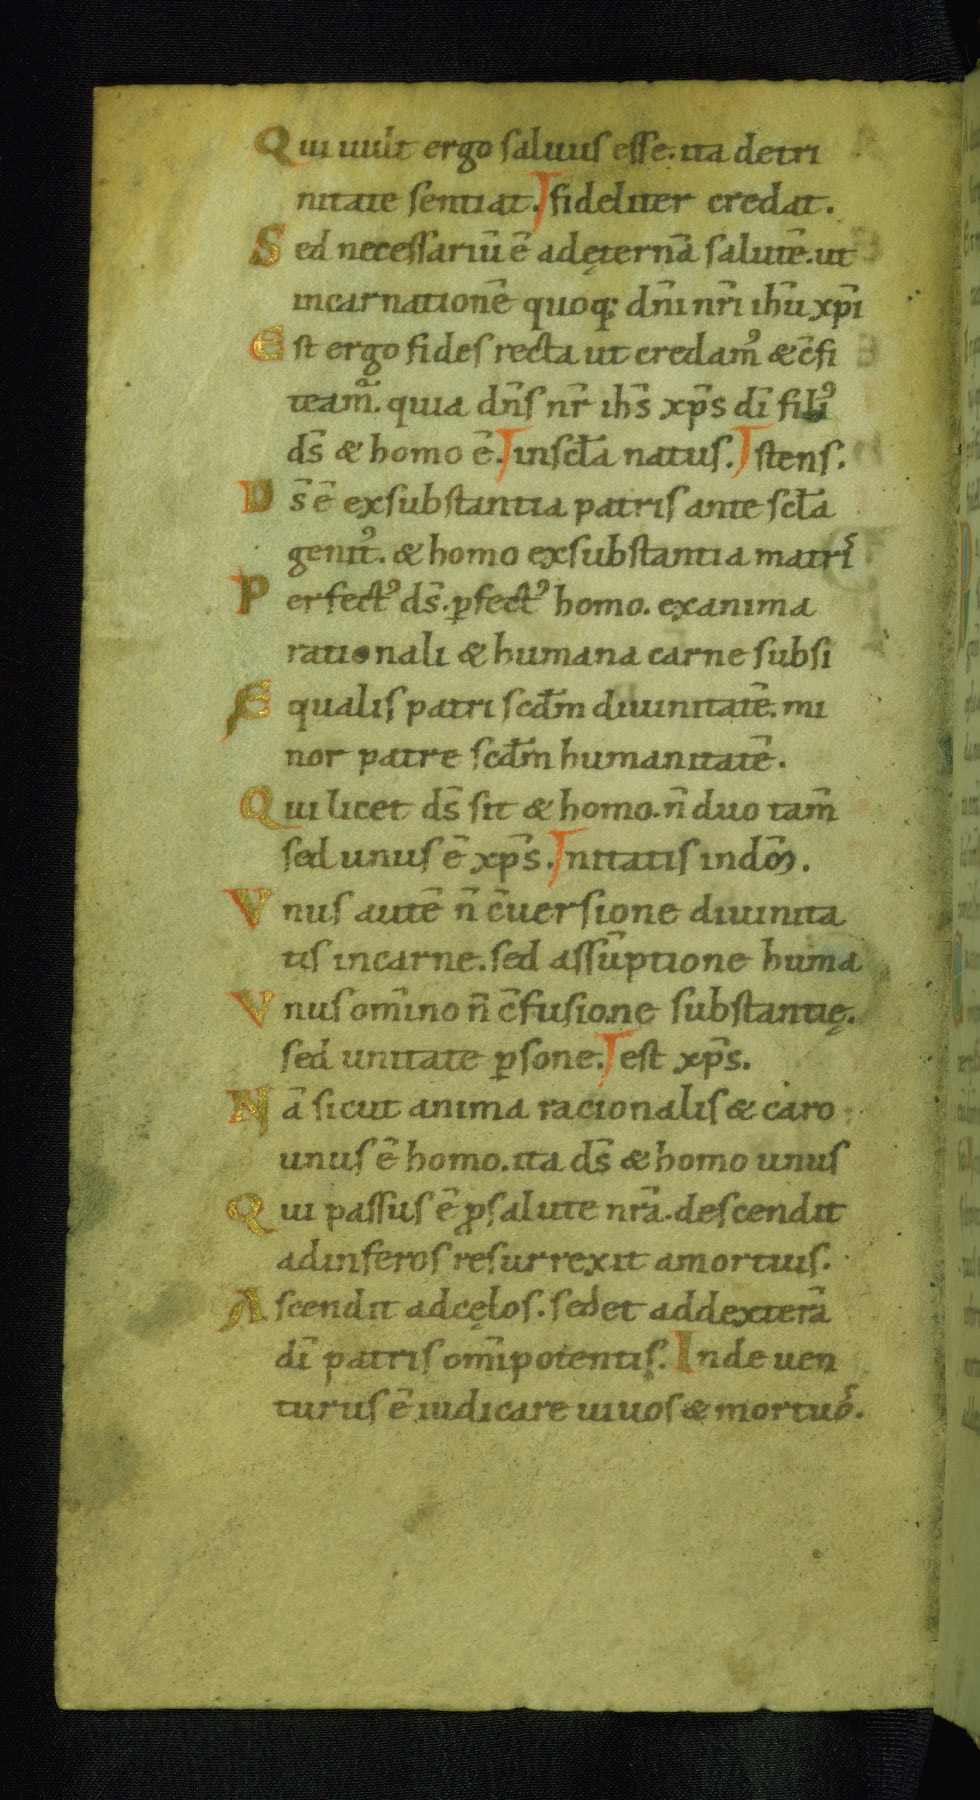 Qui uult ergo saluus esse. ita detri
nitate sentiat. fideliter credat.
Sed necessariū ē adęternā salutē. ut
incarnationē quoq; dn̄i nr̄i ihū xp̄i
Est ergo fides recta ut credamꝰ & c̄fi
team̄. quia dn̄s nr̄ ihs̄ xp̄s dī filiꝰ
ds̄ & homo ē. insc̄la natus. stens.
Ds̄ ē exsubstantia patris ante sc̄la
genitꝰ. & homo exsubstantia matrī
Perfectꝰ ds̄. ꝑfectꝰ homo. exanima
rationali & humana carne subsi
Equalis patri scd̄m diuinitatē. mi
nor patre scd̄m humanitatē.
Qui licet ds̄ sit & homo. n̄ duo tam̄
sed unus ē xp̄s. nitatis indōꝫ.
Vnus autē n̄ c̄uersione diuinita
tis incarne. sed assūptione huma
Vnus om̄ino n̄ c̄fusione substantię.
sed unitate ꝑsone. est xp̄s.
Nā sicut anima racionalis & caro
unus ē homo. ita ds̄ & homo unus
Qui passus ē ꝓsalute nrā. descendit
adinferos resurrexit amortuis.
Ascendit adcęlos. sedet addexterā
dī patris om̄ipotentis. Inde uen
turus ē iudicare uiuos & mortuō.